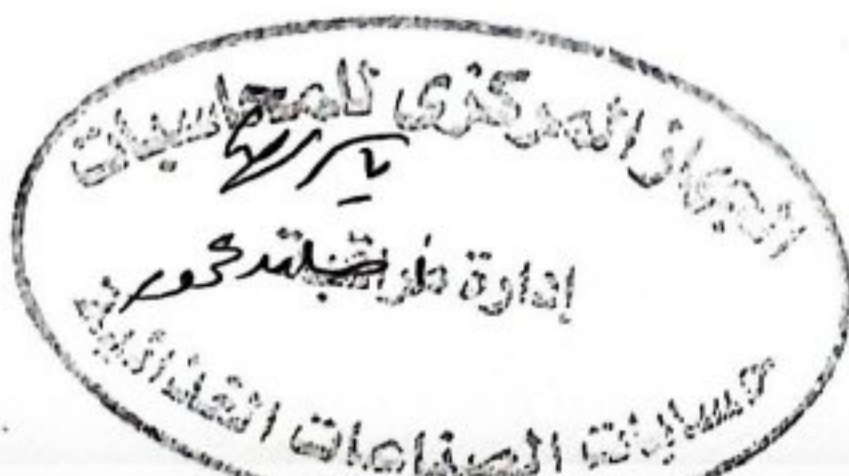 الجهاز المركزى للمحاسبات
إدارة مراقبة
حسابات الصناعات الغذائية